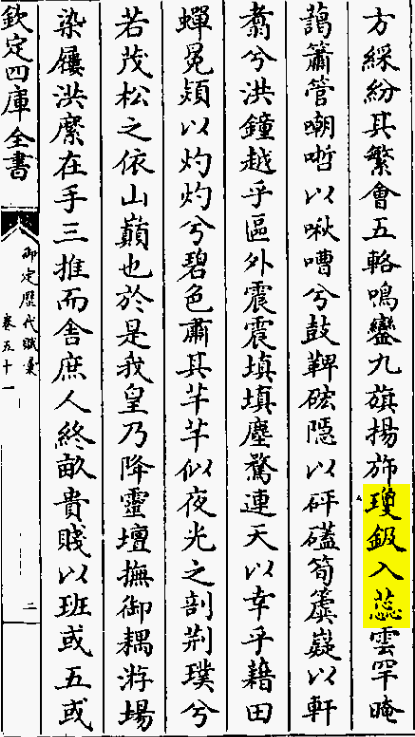 方綵紛其繁會五輅鳴鑾九旗揚斾瓊鈒入蕊雲罕晻
藹簫管嘲哳以啾嘈兮鼓鞞硡隱以砰磕筍簴嶷以軒
翥兮洪鐘越乎區外震震填填塵驚連天以幸乎藉田
蟬冕熲以灼灼兮碧色肅其芊芊似夜光之剖荆璞兮
若茂松之依山巔也於是我皇乃降靈壇撫御耦游場
染屨洪縻在手三推而舍庶人終畝貴賤以班或五或
欽定四庫全書
御定歷代賦彙
卷五十一
二